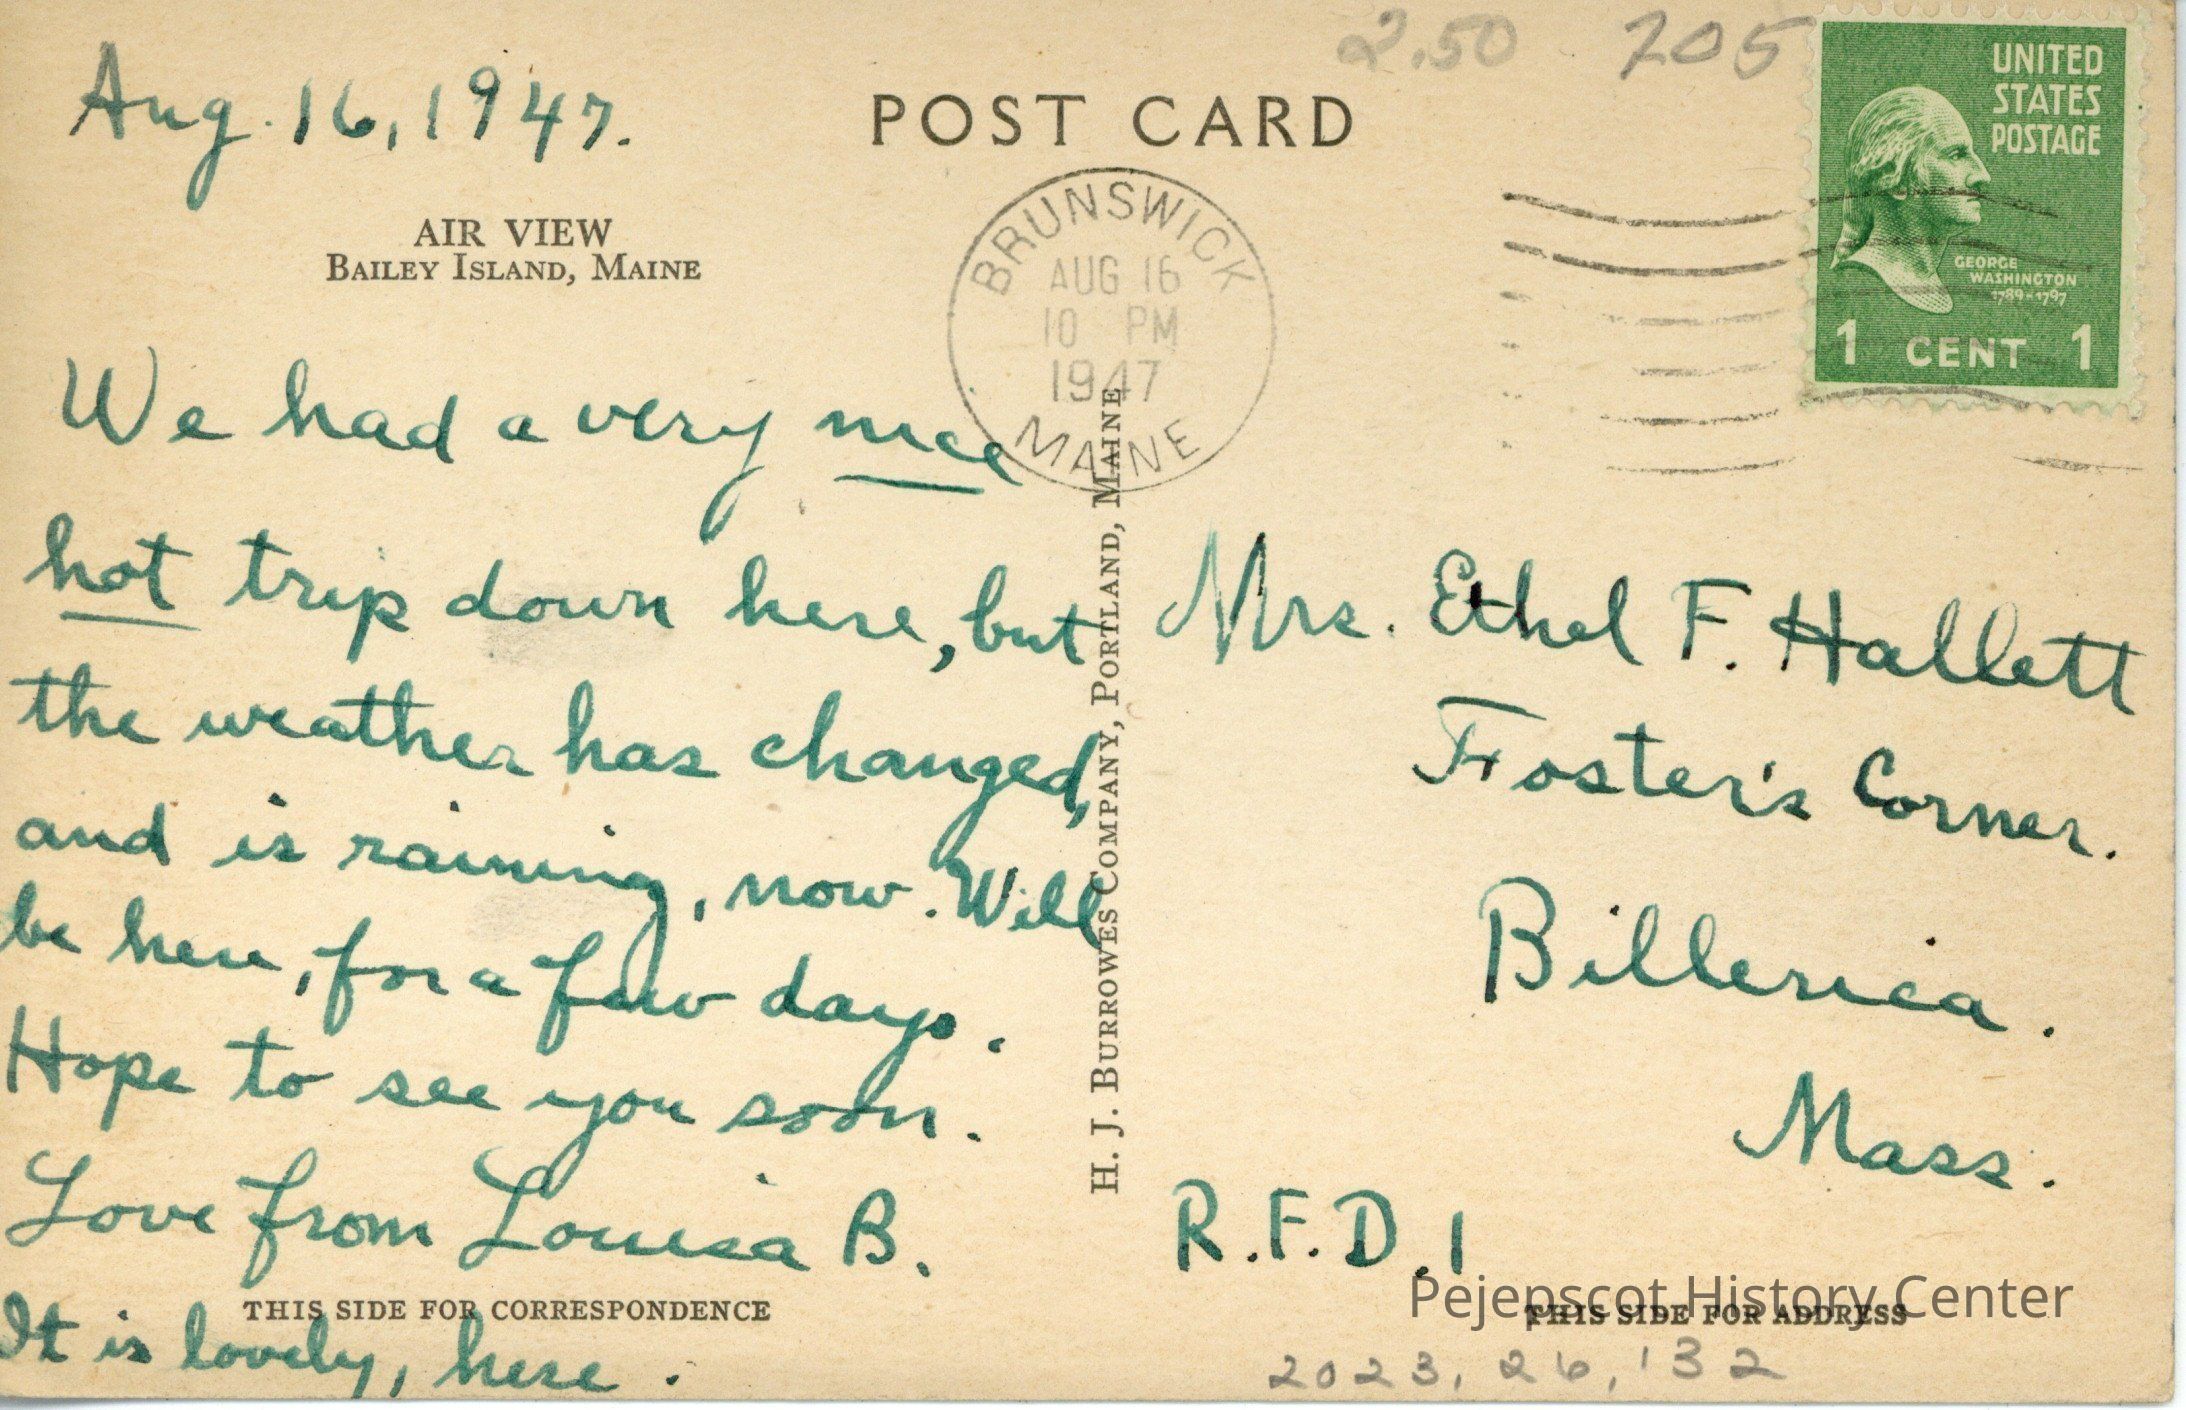 2.50 705
Aug. 16, 1947.
POST CARD
UNITED
STATES
POSTAGE
GEORGE
WASHINGTON
1789-1797
1 CENT 1
AIR VIEW
BAILEY ISLAND, MAINE
BRUNSWICK
AUG 16
10 PM
1947
MAINE
We had a very nice
hot trip down here, but
the weather has changed,
and is raining, now. Will
be here, for a few days.
Hope to see you soon.
Love from Louisa B.
It is lovely, here.
THIS SIDE FOR CORRESPONDENCE
H. J. BURROWES COMPANY, PORTLAND, MAINE
Mrs. Ethel F. Hallett
Foster's Corner.
Billerica.
Mass.
R.F.D. 1
Pejepscot History Center
THIS SIDE FOR ADDRESS
2023.26.132